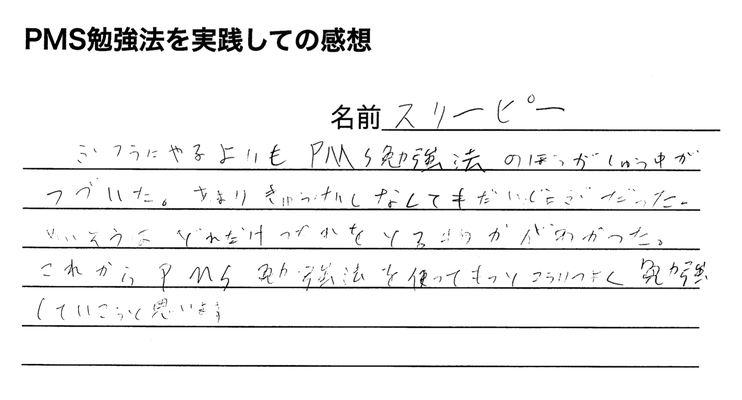 PMS勉強法を実践しての感想
名前 スリーピー
ふつうにやるよりも PMS勉強法 のほうがしゅう中が
つづいた。あまりきゅうけいしなくてもだいじょうぶだった。
どれだけ を かがわかった。
これからPMS勉強法を使ってもっとこうりつよく勉強
していこうと思います